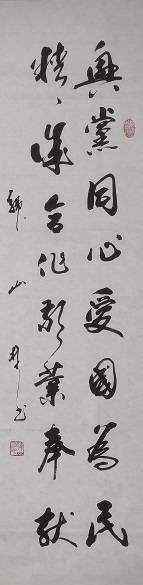 與黨同心愛國為民
精誠合作敬業奉獻
山